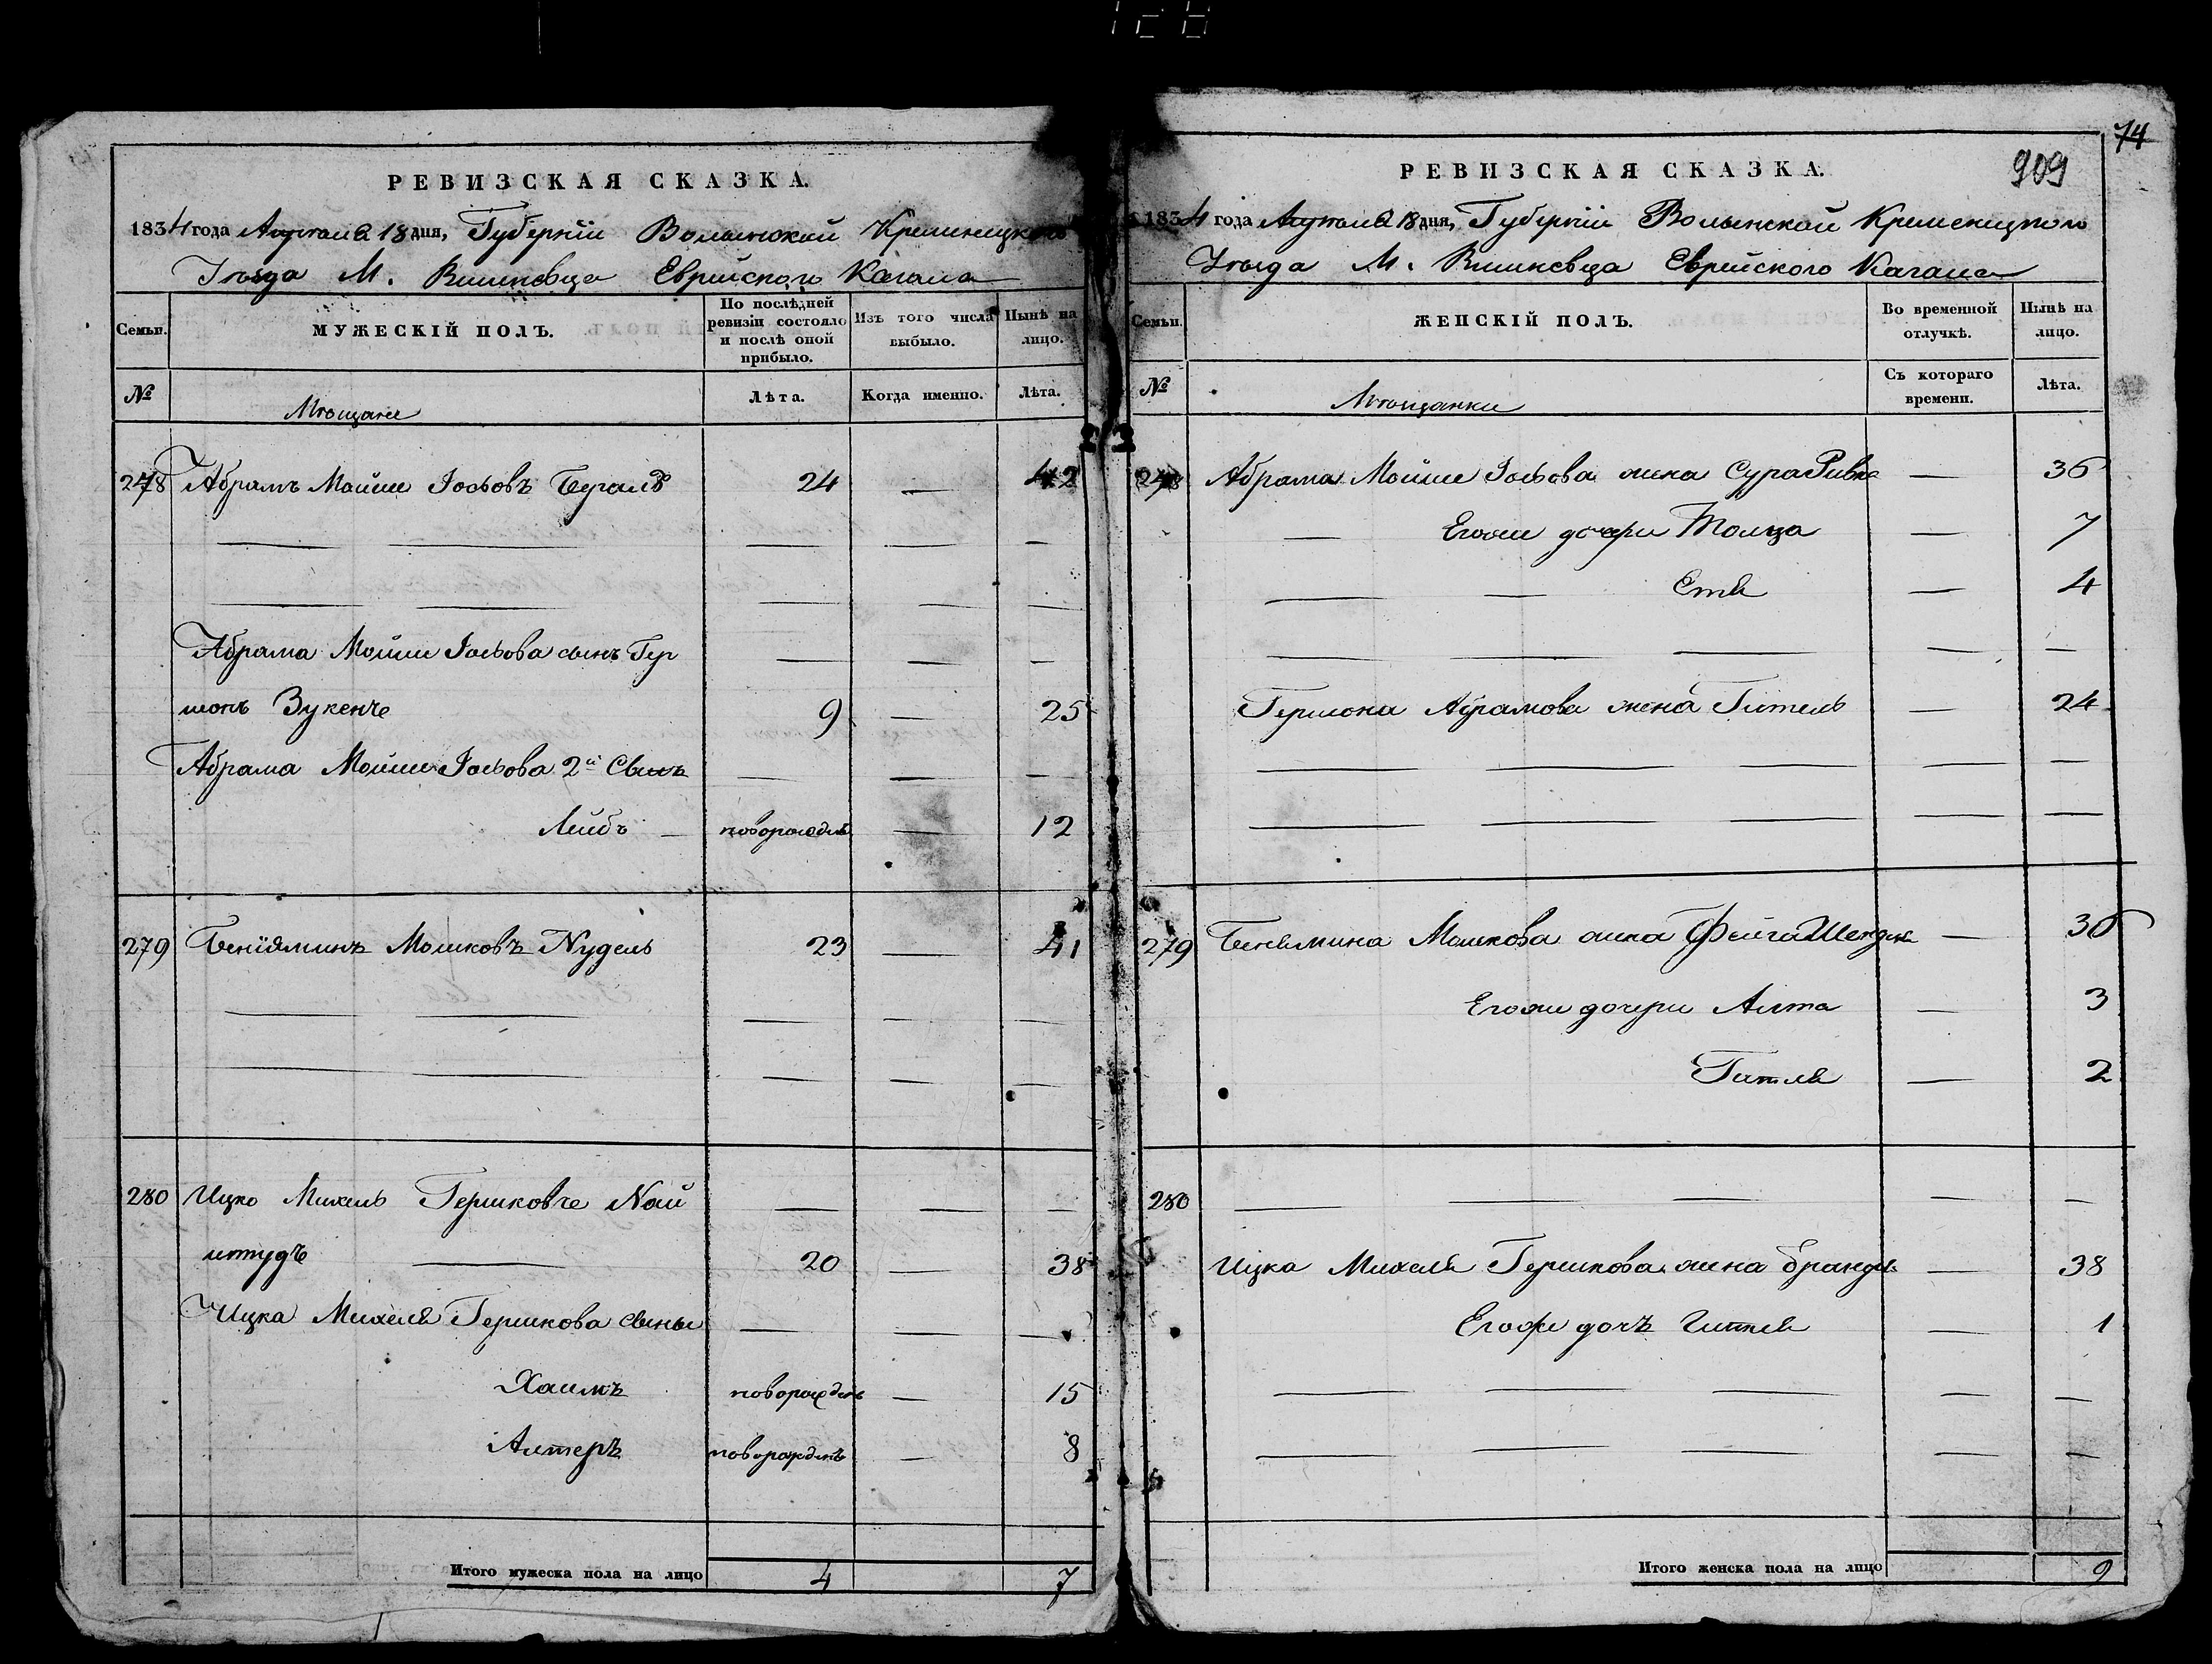 74
909
РЕВИЗСКАЯ СКАЗКА.
1834 года Апреля 18 дня, Губерніи Волынской Кременецкого
Уѣзда М. Вишневца Еврейского Кагала
Семьи. МУЖЕСКІЙ ПОЛЪ. По послѣдней ревизіи состояло и послѣ оной прибыло. Изъ того числа выбыло. Нынѣ на лицо.
№ Мѣщане Лѣта. Когда именно. Лѣта.
278 Абрамъ Мойше Іосьовъ 24 — 42
— — — — —
— — — — —
Абрама Мойше Іосьова сынъ Гер
шонъ Зукенче 9 — 25
Абрама Мойше Іосьова 2й Сынъ — — —
Лейбъ — новорожден — 12
279 Беніяминъ Мошковъ Nудель 23 — 41
— — — — —
— — — — —
280 Ицко Михель Гершковъ Nай — — —
штудъ — 20 — 38
Ицка Михеля Гершкова сыны — — —
Хаимъ новорожден — 15
Алтеръ новорожденъ — 8
Итого мужеска пола на лицо 4 7
РЕВИЗСКАЯ СКАЗКА.
1834 года Апреля 18 дня, Губерніи Волынской Кременецкого
Уѣзда М. Вишневца Еврейского Кагала
Семьи. ЖЕНСКІЙ ПОЛЪ. Во временной отлучкѣ. Нынѣ на лицо.
№ Мѣщанки Съ котораго времени. Лѣта.
278 Абрама Мойше Іосьова жена Сура Ривка — 36
— Егоже дочери Толца — 7
— — Етя — 4
— — — — —
Гершона Абрамова жена Гитель — 24
— — — — —
— — — — —
279 Бенямина Мошкова жена Фейга Шендля — 36
Егоже дочери Алта — 3
Гитля — 2
280 — — — — —
Ицка Михеля Гершкова жена Брандля — 38
Егоже дочъ Гитля — 1
— — — — —
— — — — —
Итого женска пола на лицо 9